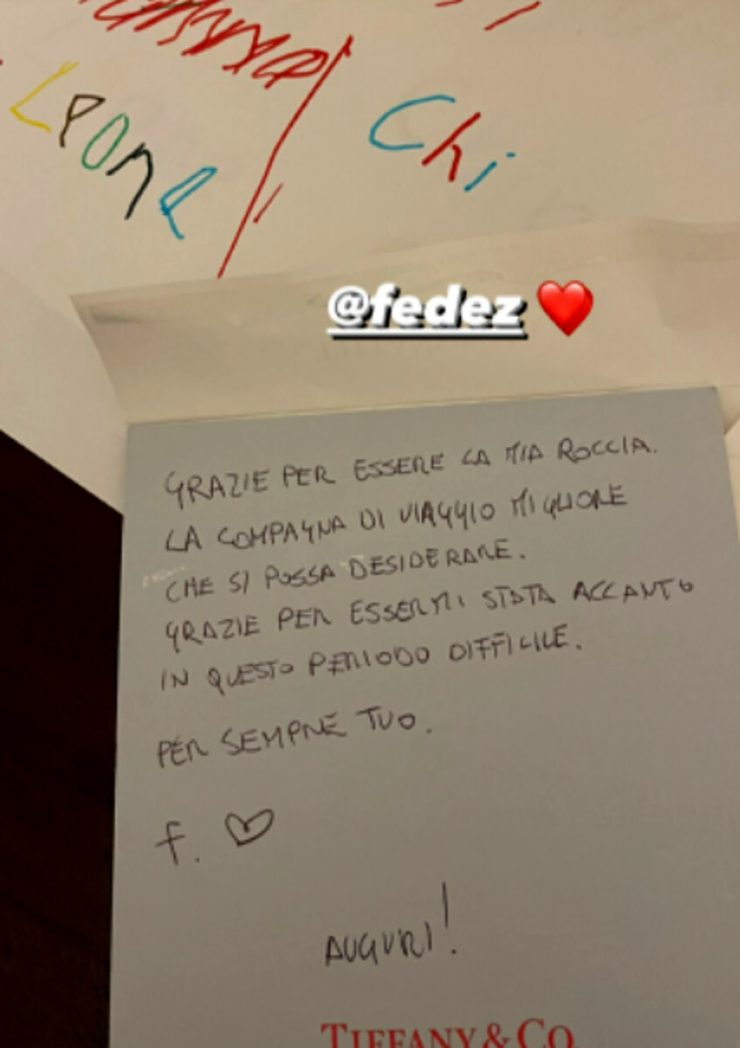 Leone
Chi
@fedez
GRAZIE PER ESSERE LA MIA ROCCIA.
LA COMPAGNA DI VIAGGIO MIGLIORE
CHE SI POSSA DESIDERARE.
GRAZIE PER ESSERMI STATA ACCANTO
IN QUESTO PERIODO DIFFICILE.
PER SEMPRE TUO.
f.
AUGURI!
TIFFANY & CO.